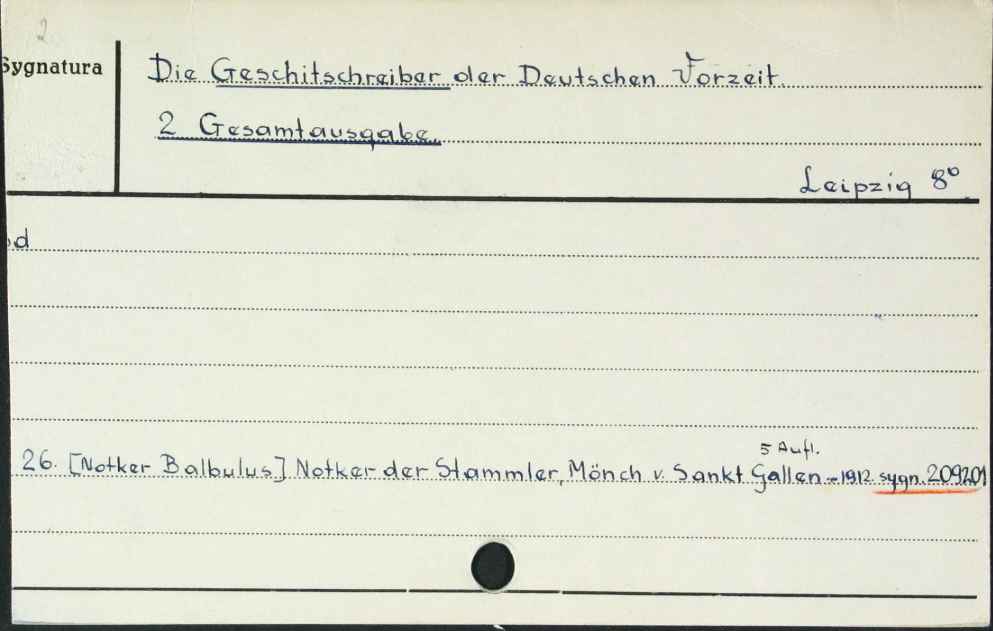 2
Sygnatura
Die Geschitschreiber der Deutschen Vorzeit.
2 Gesamtausgabe.
Leipzig 8°
od
5 Aufl.
26. [Notker Balbulus] Notker der Stammler, Mönch v. Sankt Gallen – 1912. sygn. 209201